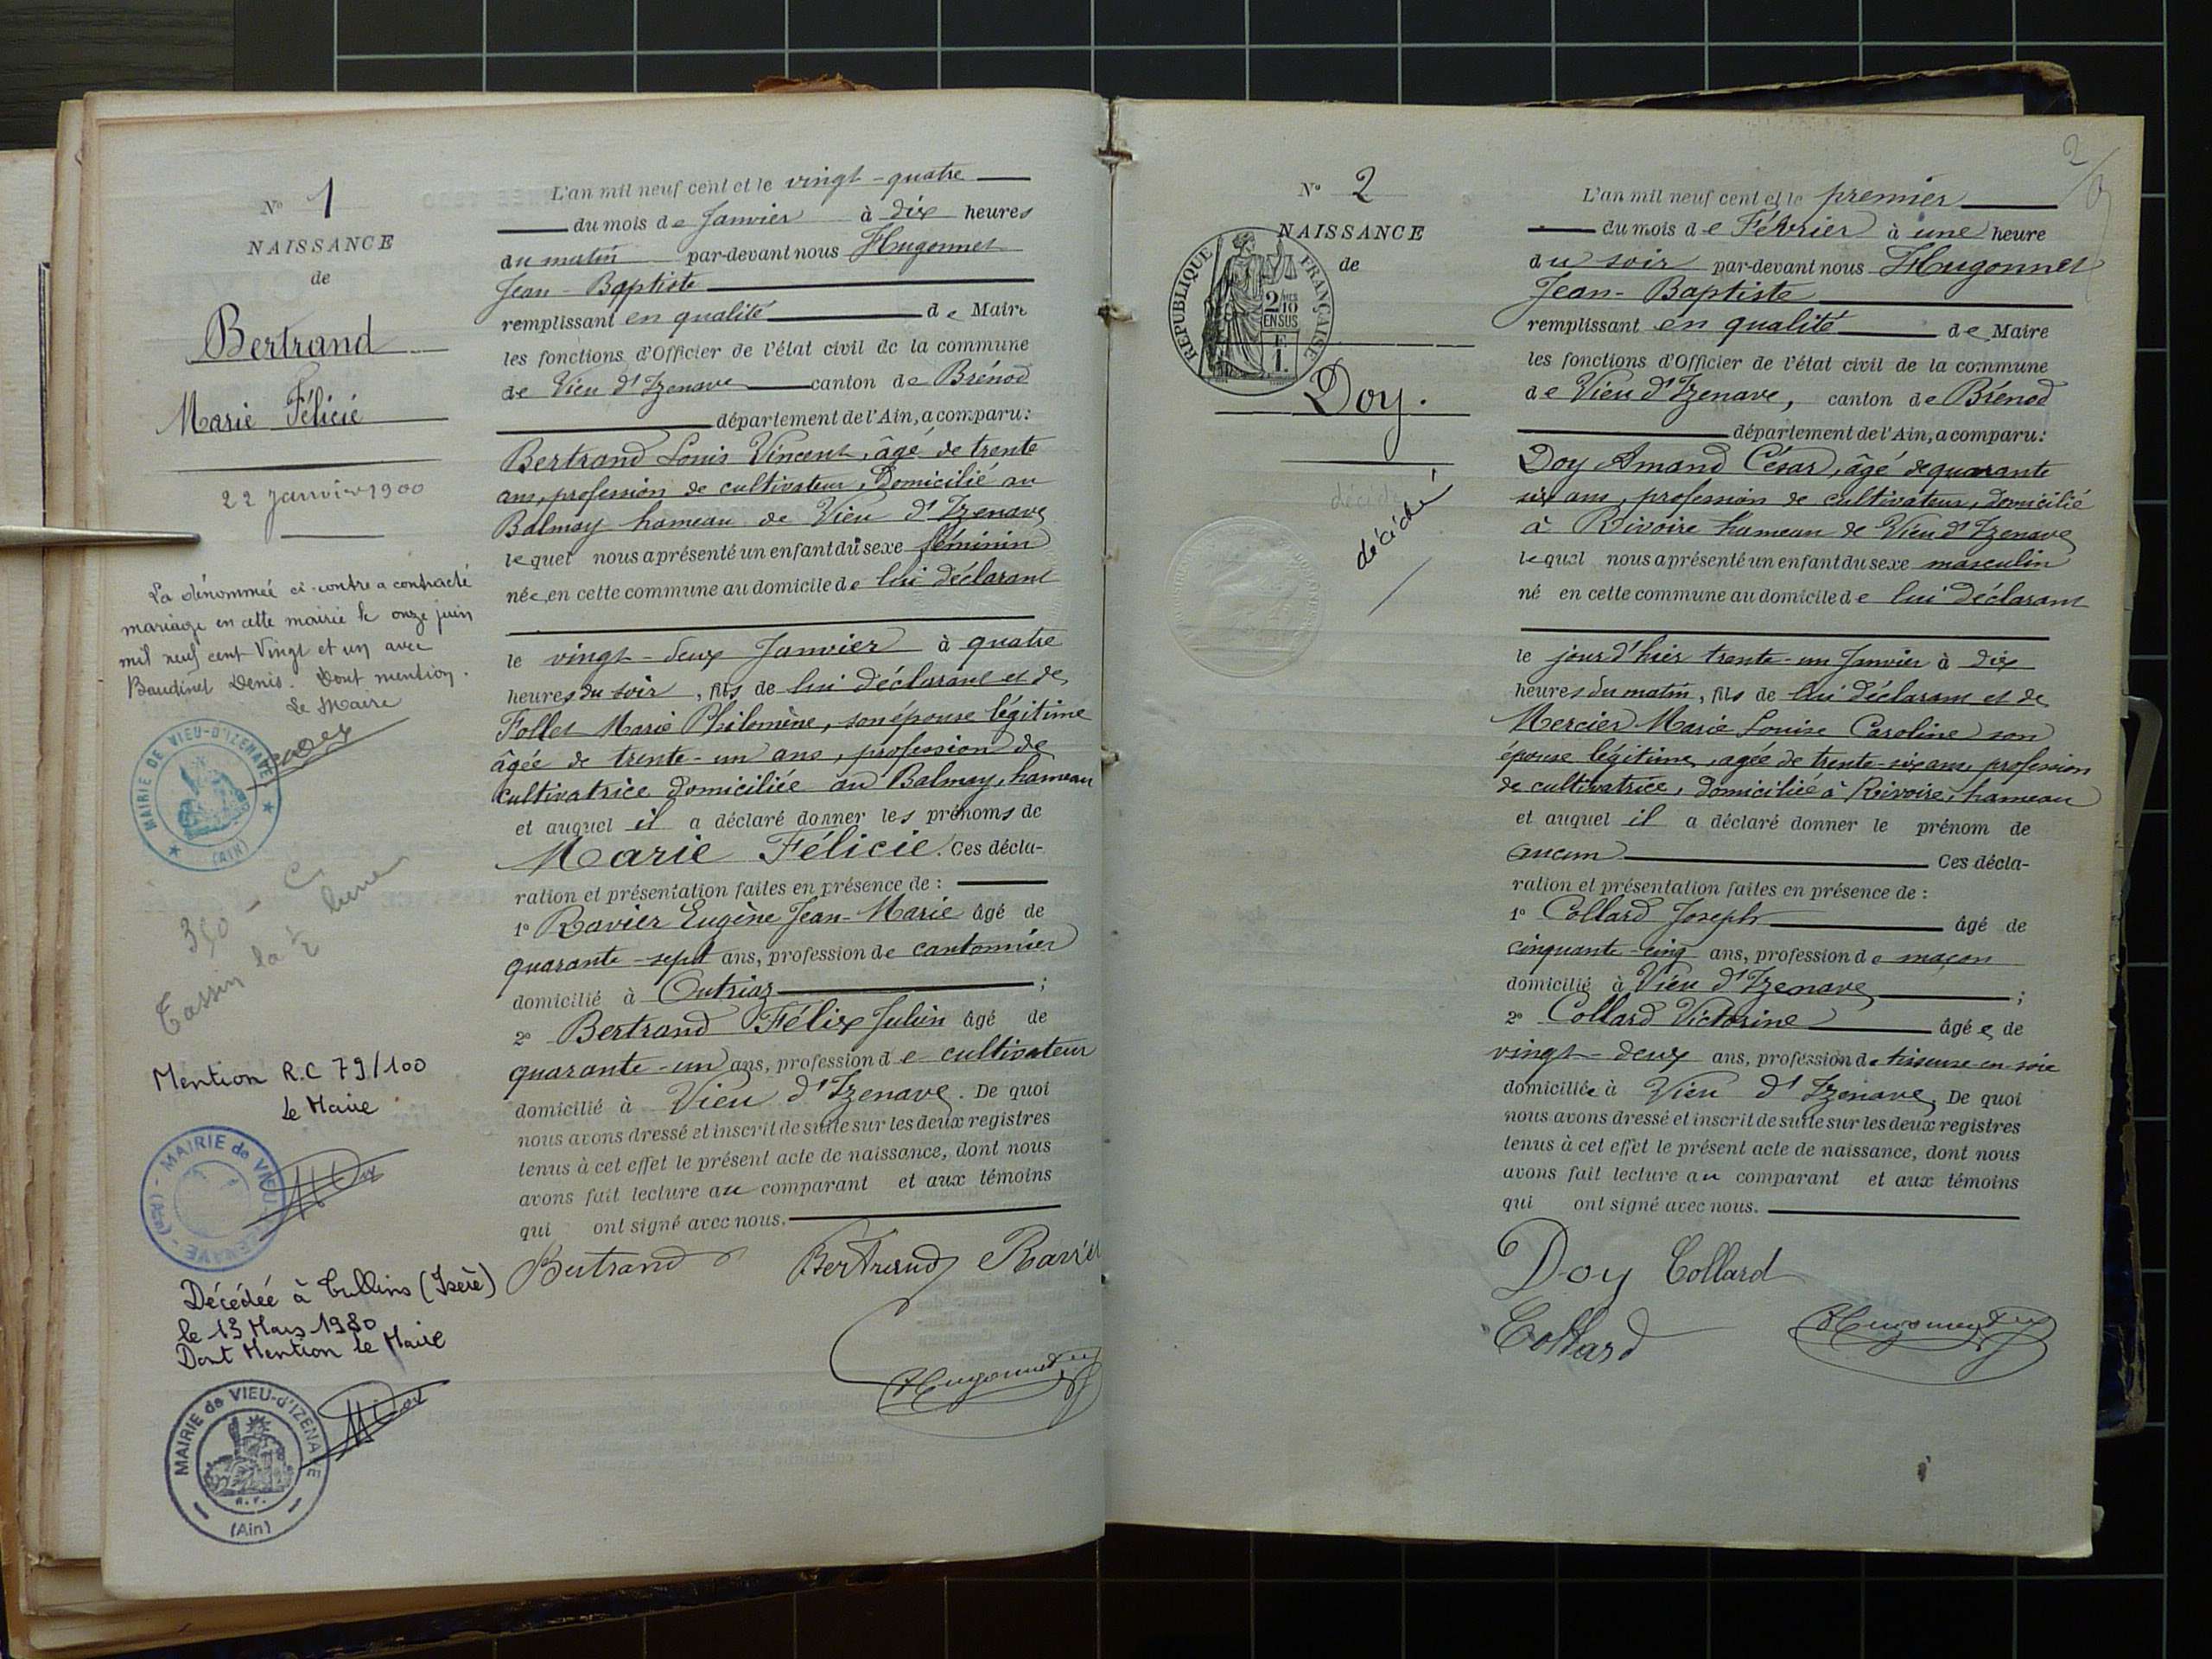 N° 1
NAISSANCE
de
Bertrand
Marie Félicie
22 janvier 1900
La dénommée ci-contre a contracté
mariage en cette mairie le onze juin
mil neuf cent Vingt et un avec
Baudinet Denis. Dont mention.
Le Maire
MAIRIE DE VIEU-D'IZENAVE
(AIN)
350 -
Tassin la 1/2 lune
Mention R.C 79/100
Le Maire
MAIRIE de VIEU-D'IZENAVE - (Ain) -
Décédée à Tullins (Isère)
le 13 Mars 1980
Dont Mention le Maire
MAIRIE de VIEU-d'IZENAVE
R.F.
(Ain)
L'an mil neuf cent et le vingt-quatre
du mois de Janvier à dix heures
du matin par-devant nous Hugonnet
Jean-Baptiste
remplissant en qualité de Maire
les fonctions d'Officier de l'état civil de la commune
de Vieu d'Izenave canton de Brénod
département de l'Ain, a comparu:
Bertrand Louis Vincent, âgé de trente
ans, profession de cultivateur, domicilié au
Balmay hameau de Vieu d'Izenave
lequel nous a présenté un enfant du sexe féminin
née, en cette commune au domicile de lui déclarant
le vingt-deux Janvier à quatre
heures du soir, fils de lui déclarant et de
Follet Marie Philomène, son épouse légitime
âgée de trente-un ans, profession de
cultivatrice domiciliée au Balmay, hameau
et auquel il a déclaré donner les prénoms de
Marie Félicie. Ces décla-
ration et présentation faites en présence de :
1° Ravier Eugène Jean-Marie âgé de
quarante-sept ans, profession de cantonnier
domicilié à Outriaz ;
2° Bertrand Félix Julien âgé de
quarante-un ans, profession de cultivateur
domicilié à Vieu d'Izenave. De quoi
nous avons dressé et inscrit de suite sur les deux registres
tenus à cet effet le présent acte de naissance, dont nous
avons fait lecture au comparant et aux témoins
qui ont signé avec nous.
Bertrand Bertrand Ravier
Hugonnet
2
N° 2
NAISSANCE
de
REPUBLIQUE FRANÇAISE
2/10 EN SUS
Doy.
décédé
L'an mil neuf cent et le premier
du mois de Février à une heure
du soir par-devant nous Hugonnet
Jean-Baptiste
remplissant en qualité de Maire
les fonctions d'Officier de l'état civil de la commune
de Vieu d'Izenave, canton de Brénod
département de l'Ain, a comparu:
Doy Amand César, âgé de quarante
six ans, profession de cultivateur, domicilié
à Rivoire hameau de Vieu d'Izenave
lequel nous a présenté un enfant du sexe masculin
né en cette commune au domicile de lui déclarant
le jour d'hier trente-un Janvier à dix
heures du matin, fils de lui déclarant et de
Mercier Marie Louise Caroline son
épouse légitime, agée de trente-six ans, profession
de cultivatrice, domiciliée à Rivoire, hameau
et auquel il a déclaré donner le prénom de
aucun Ces décla-
ration et présentation faites en présence de :
1° Collard Joseph âgé de
cinquante-cinq ans, profession de maçon
domicilié à Vieu d'Izenave ;
2° Collard Victorine âgée de
vingt-deux ans, profession de tisseuse en soie
domiciliée à Vieu d'Izenave. De quoi
nous avons dressé et inscrit de suite sur les deux registres
tenus à cet effet le présent acte de naissance, dont nous
avons fait lecture au comparant et aux témoins
qui ont signé avec nous.
Doy Collard
Collard Hugonnet